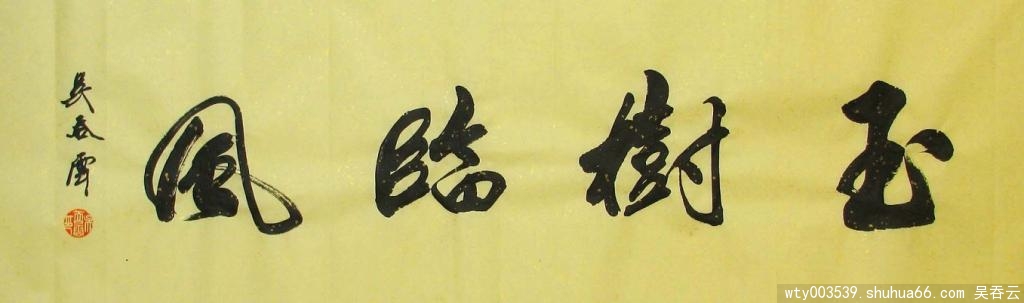 玉樹臨風
吳吞雲
wty003539.shuhua66.com 吴吞云